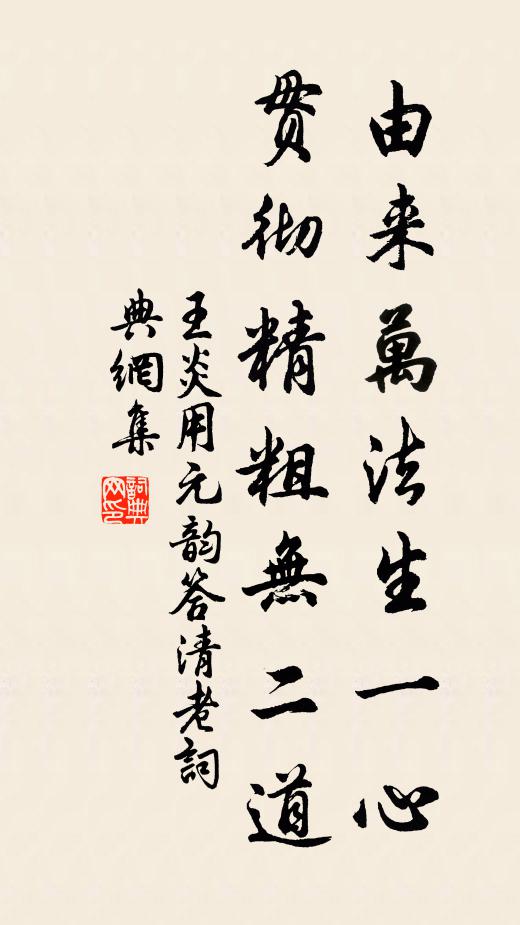 由来萬法生一心
贯彻精粗無二道
王炎用元韵答清老詞
典網集
詞典网印